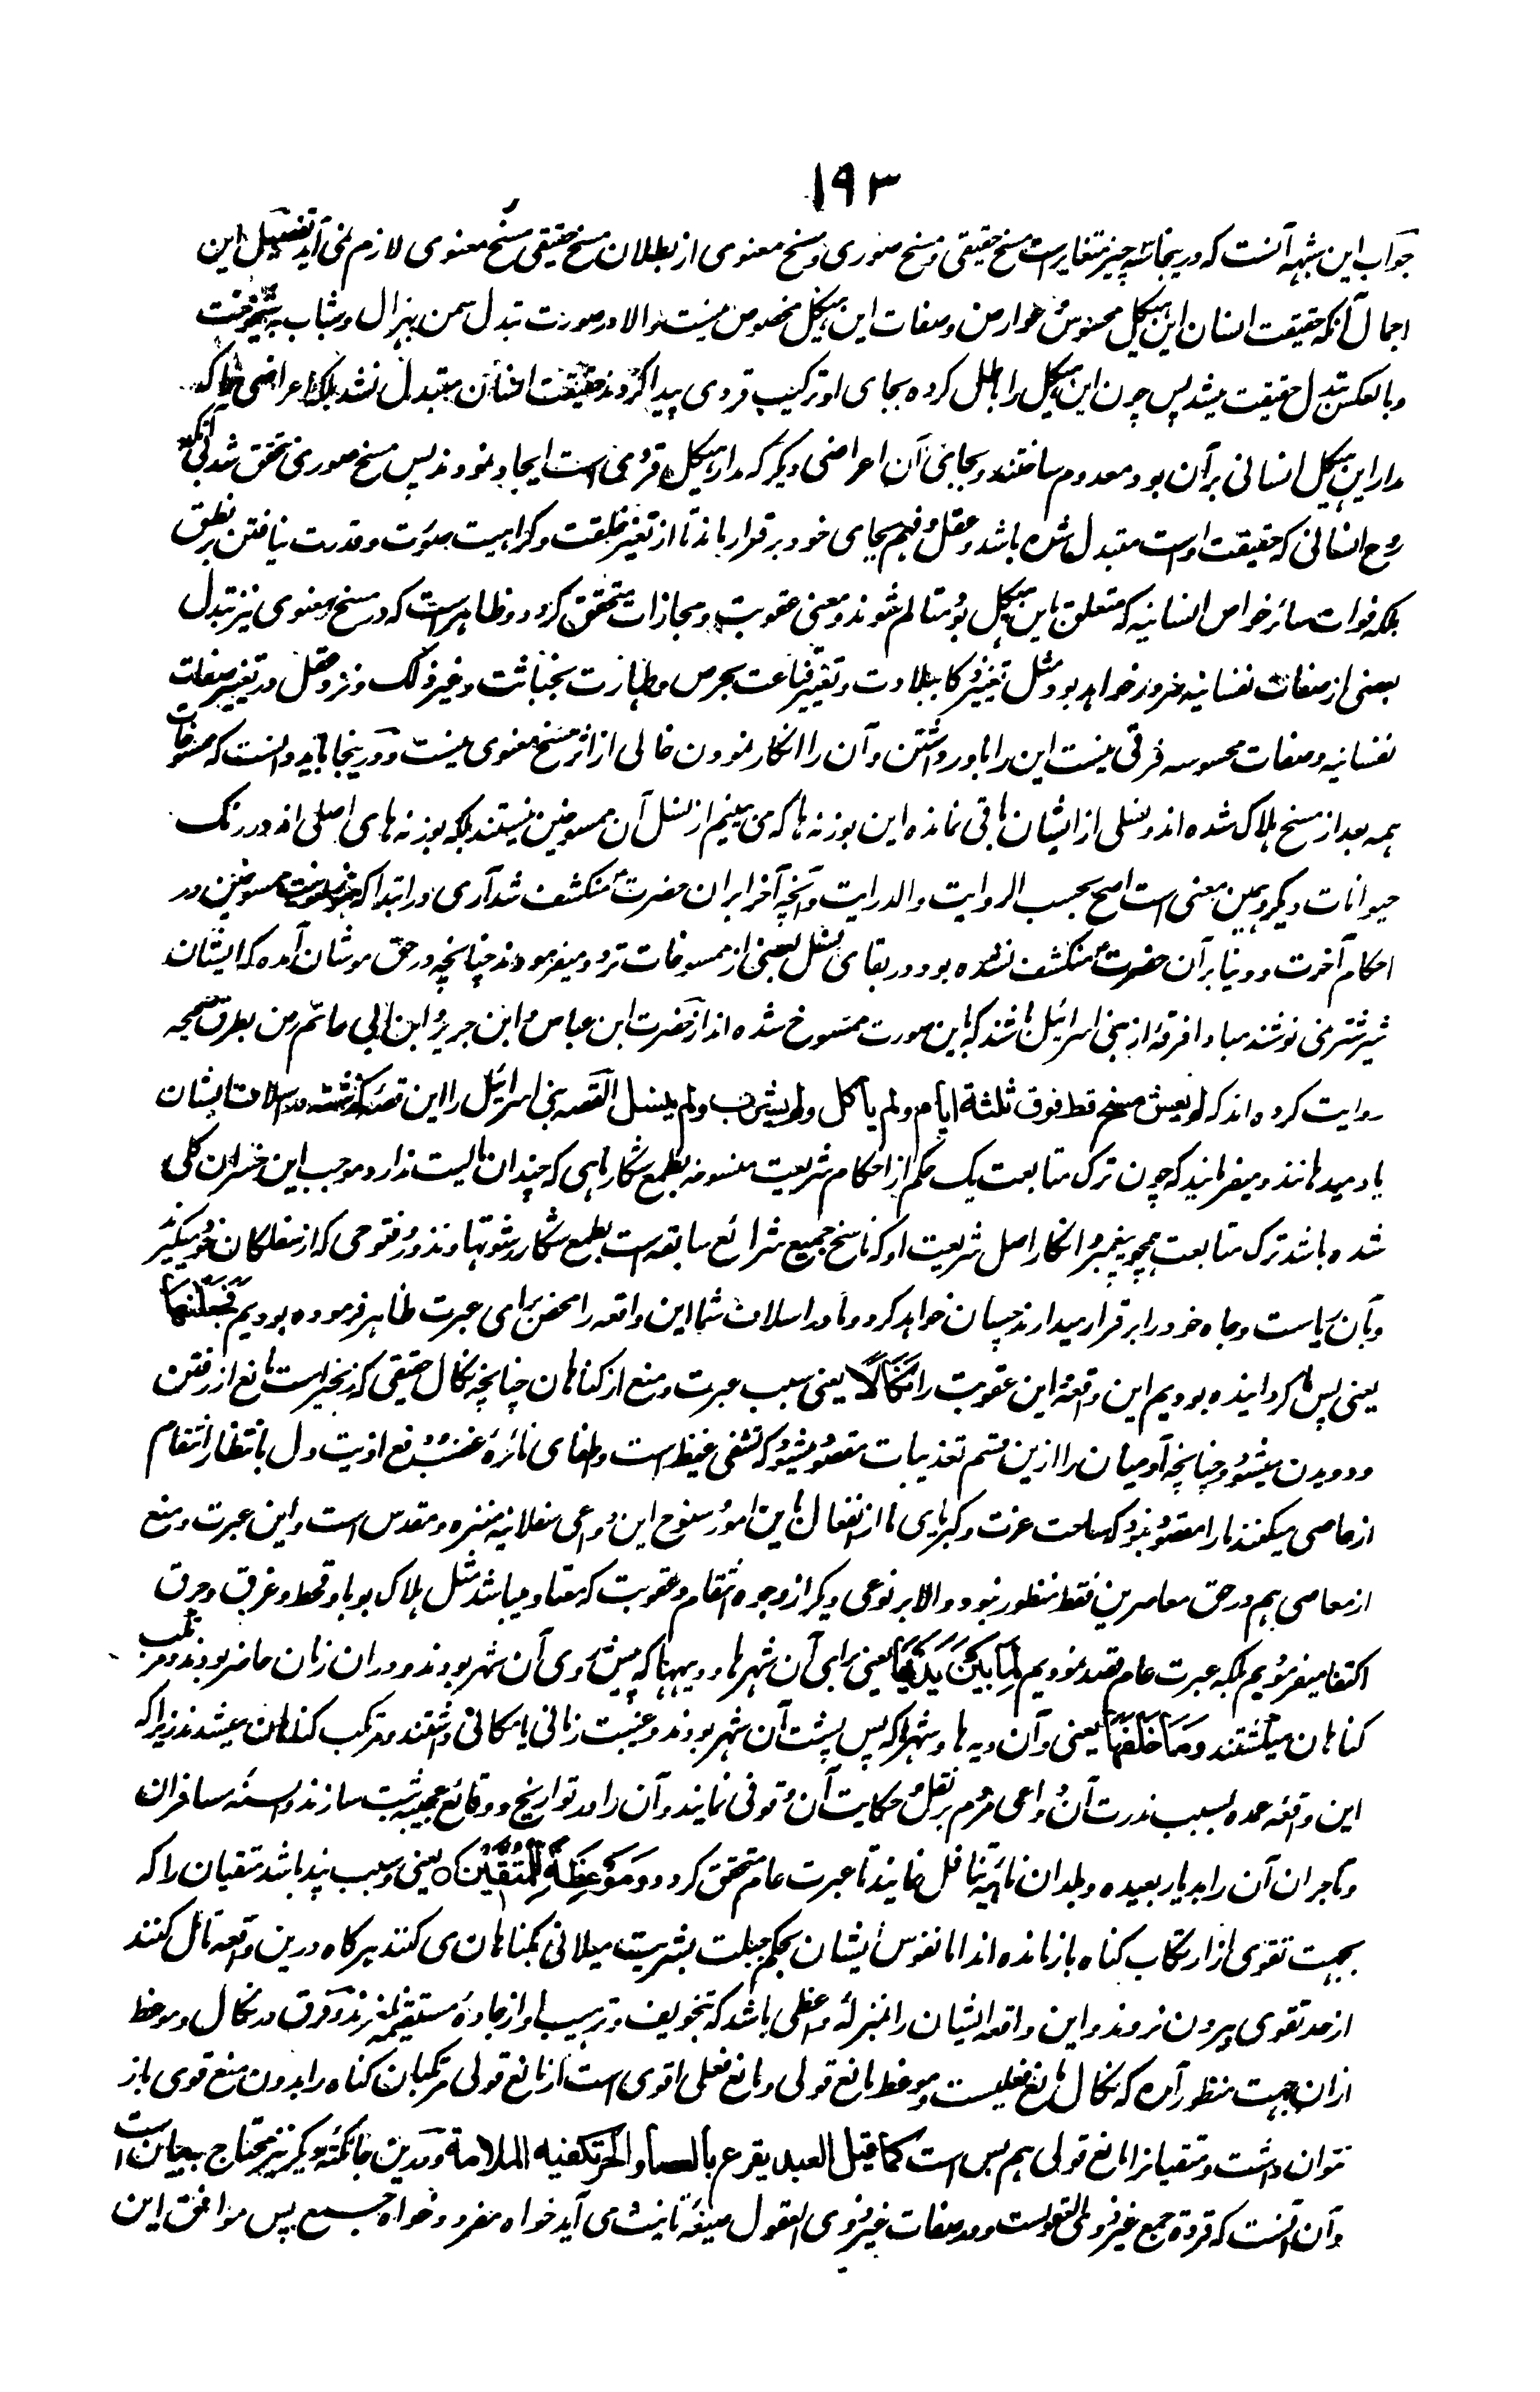 ۱۹۳
جواب این شبهه آنست که درینجا سه چیز متغایر است مسخ حقیقی و مسخ صوری و مسخ معنوی از بطلان مسخ حقیقی مسخ معنوی لازم نمی آید تفصیل این
اجمال آنکه حقیقت انسان این هیکل محسوس و عوارض و صفات این هیکل مخصوص نیست والا در صورت تبدل سمن بهزال و شباب به شیخوخت
و بالعکس تبدل حقیقت میشد پس چون این هیکل را باطل کرده بجای او ترکیب قردی پیدا کردند حقیقت انسان متبدل نشد بلکه اعراضی را که
مدار این هیکل انسانی بر آن بود معدوم ساختند و بجای آن اعراضی دیگر که مدار هیکل قردی است ایجاد نمودند پس مسخ صوری متحقق شد بی آنکه
روح انسانی که حقیقت اوست متبدل شده باشد و عقل و فهم بجای خود برقرار ماند تا از تغیر خلقت و کراهیت صوت و قدرت نیافتن بر نطق
بلکه فوات سائر خواص انسانیه که متعلق باین هیکل بود متالم شوند و معنی عقوبت و مجازات متحقق گردد و ظاهر است که در مسخ معنوی نیز تبدل
بعضی از صفات نفسانیه ضرور خواهد بود مثل تغییر ذکا ببلادت و تغییر قناعت بحرص و طهارت بخباثت و غیر ذلک و نزد عقل در تغییر صفات
نفسانیه و صفات محسوسه فرقی نیست این را باور داشتن و آن را انکار نمودن خالی از اثر مسخ معنوی نیست و درینجا باید دانست که ممسوخات
همه بعد از مسخ هلاک شده اند و نسلی از ایشان باقی نمانده این بوزنه ها که می بینیم از نسل آن ممسوخین نیستند بلکه بوزنه های اصلی اند در رنگ
حیوانات دیگر و همین معنی است اصح بحسب الروایت والدرایت و آنچه آخر ابران حضرت منکشف شد آری در ابتدا که ممسوخین در
احکام آخرت و دنیا بر آن حضرت منکشف نشده بود در بقای نسل بعضی از ممسوخات تردد میفرمودند چنانچه در حق موشان آمده که ایشان
شیر شتر نمی نوشند مبادا فرقه از بنی اسرائیل باشند که باین صورت ممسوخ شده اند از حضرت ابن عباس ابن جریر و ابن ابی حاتم رض بطرق صحیحه
روایت کرده اند که لم یعش مسخ قط فوق ثلثة ایام و لم یأکل و لم یشرب و لم ینسل القصه بنی اسرائیل را این قصه گذشته اسلاف ایشان
یاد میدهانند و میفرمایند که چون ترک متابعت یک حکم از احکام شریعت منسوخه بطمع شکار ماهی که چندان مالیت ندارد موجب این خسران کلی
شده باشد ترک متابعت همچو پیغمبر و انکار اصل شریعت او که ناسخ جمیع شرائع سابقه است بطمع شکار رشوتها و نذور و فتوحی که از سفلگان خود میگیرند
و بآن ریاست و جاه خود را برقرار میدارند چسان خواهد کرد و ما در اسلاف شما این واقعه را محض برای عبرت ظاهر فرموده بودیم فَجَعَلْنٰهَا
یعنی پس گردانیده بودیم این واقعه و این عقوبت را نَكَالًا یعنی سبب عبرت و منع از گناهان چنانچه نکال حقیقی که زنجیر است مانع از رفتن
و دویدن میشود و چنانچه آدمیان را ازین قسم تعذیبات مقصود میشود که تشفی غیظ است و اطفای نائره غضب و دفع اذیت دل بانتظار انتقام
از عاصی میکنند ما را مقصود نبود که ساحت عزت و کبریای ما از انفعال باین امور و سنوح این دواعی سفلانیه منزه و مقدس است و این عبرت و منع
از معاصی هم در حق معاصرین فقط منظور نبود والا بر نوعی دیگر از وجوه انتقام و عقوبت که معتاد میباشد مثل هلاک بوبا و قحط و غرق و حرق
اکتفا میفرمودیم بلکه عبرت عام قصد نمودیم لِمَا بَيْنَ يَدَيْهَا یعنی برای آن شهرها و دیهها که پیش روی آن شهر بودند و در ان زمان حاضر بودند و مرتکب
گناهان میگشتند وَمَا خَلْفَهَا یعنی و آن دیه ها و شهرها که پس پشت آن شهر بودند و غیبت زمانی یا مکانی داشتند و مرتکب گناهان میشدند زیرا که
این واقعه عمده بسبب ندرت آن دواعی مردم بر نقل و حکایت آن وقوفی نمایند و آن را در تواریخ و وقائع عجیبه ثبت سازند و السنه مسافران
و تاجران آن را بدیار بعیده و بلدان نائیه تناقل نمایند تا عبرت عام متحقق گردد وَمَوْعِظَةً لِّلْمُتَّقِيْنَ ○ یعنی و سبب پند باشد متقیان را که
بجهت تقوی از ارتکاب گناه بازمانده اند اما نفوس ایشان بحکم جبلت بشریت میلانی بگناهان می کنند هر گاه درین واقعه تامل کنند
از حد تقوی بیرون نروند و این واقعه ایشان را بمنزله واعظی باشد که بتخویف و ترهیب او از جاده مستقیمه نلغزند و فرق در نکال و موعظ
ازان جهت منظور آمده که نکال مانع فعلیست و موعظ مانع قولی و مانع فعلی اقوی است از مانع قولی مرتکبان گناه را بدون منع قوی باز
نتوان داشت و متقیانرا مانع قولی هم بس است کما قیل العبد یقرع بالعصا و الحر تکفیه الملامة و درین جا نکته دیگر نیز محتاج ببیان است
و آن آنست که قردة جمع غیر ذوی العقولست و در صفات غیر ذوی العقول صیغه تانیث می آید خواه مفرد و خواه جمع پس موافق این